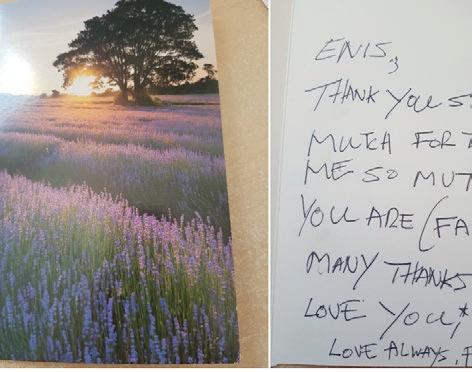 ENIS,
THANK YOU S
MUCH FOR
ME SO MUT
YOU ARE (FA
MANY THANKS
LOVE YOU,*
LOVE ALWAYS, F